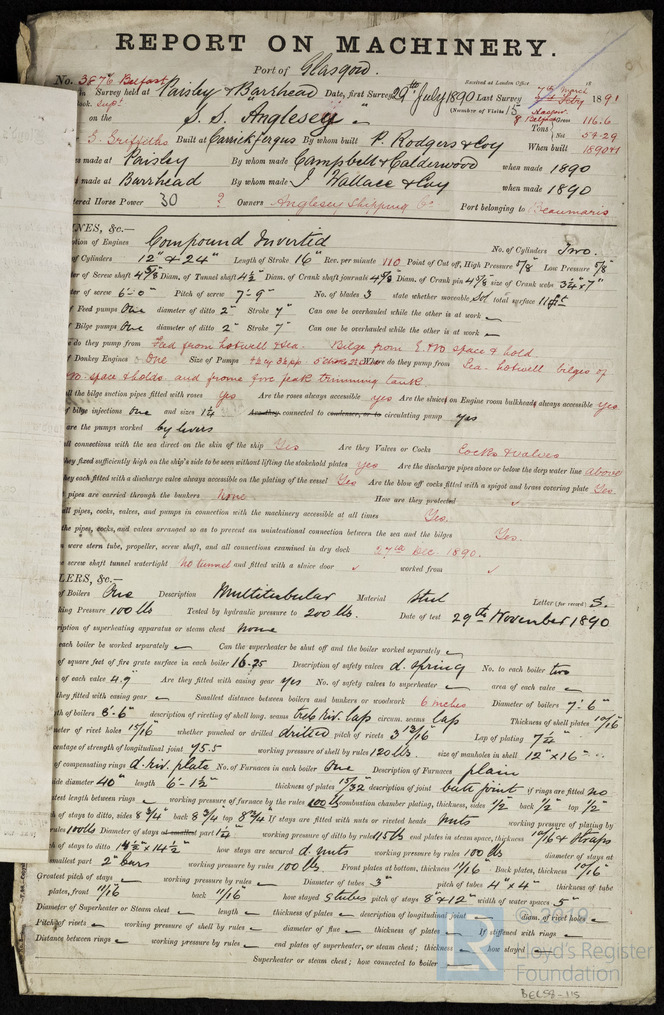 REPORT ON MACHINERY.
Port of Glasgow.
Received at London Office
No. 3876 Belfast
in Survey held at Paisley & Barrhead Date, first Survey 29th July 1890 Last Survey 7th March 1891
book. Supt
(Number of Visits 15
on the S.S. "Anglesey"
Tons Gross 116.6
Net 54.29
G. Griffiths Built at Carrickfergus By whom built P. Rodgers & Coy When built 1890
es made at Paisley By whom made Campbell & Calderwood when made 1890
made at Barrhead By whom made J Wallace & Coy when made 1890
tered Horse Power 30 ? Owners Anglesey Shipping Co Port belonging to Beaumaris
INES, &c.—
ption of Engines Compound Inverted No. of Cylinders Two.
of Cylinders 12" & 24" Length of Stroke 16" Rev. per minute 110 Point of Cut off, High Pressure 5/8 Low Pressure 5/8
ter of Screw shaft 4 5/8 Diam. of Tunnel shaft 4 1/2 Diam. of Crank shaft journals 4 5/8 Diam. of Crank pin 4 5/8 size of Crank webs 3 1/4 x 7"
ter of screw 6'-0" Pitch of screw 7'-9" No. of blades 3 state whether moveable Sol total surface 11 ft
of Feed pumps One diameter of ditto 2" Stroke 7" Can one be overhauled while the other is at work —
of Bilge pumps One diameter of ditto 2" Stroke 7" Can one be overhauled while the other is at work —
do they pump from Feed from hotwell & Sea. Bilge from E. Rm space & hold.
of Donkey Engines One Size of Pumps Where do they pump from Sea. hotwell bilges of
m. space & holds. and from fore peak trimming tank
all the bilge suction pipes fitted with roses yes Are the roses always accessible yes Are the sluices on Engine room bulkheads always accessible yes
of bilge injections One and sizes 1 1/4 Are they connected to condenser, or to circulating pump yes
are the pumps worked by levers
all connections with the sea direct on the skin of the ship Yes Are they Valves or Cocks Cocks & valves
they fixed sufficiently high on the ship's side to be seen without lifting the stokehold plates yes Are the discharge pipes above or below the deep water line above
they each fitted with a discharge valve always accessible on the plating of the vessel Yes Are the blow off cocks fitted with a spigot and brass covering plate Yes.
pipes are carried through the bunkers None How are they protected ✓
all pipes, cocks, valves, and pumps in connection with the machinery accessible at all times Yes.
the pipes, cocks, and valves arranged so as to prevent an unintentional connection between the sea and the bilges Yes.
n were stern tube, propeller, screw shaft, and all connections examined in dry dock 27th Dec. 1890.
he screw shaft tunnel watertight no tunnel and fitted with a sluice door ✓ worked from ✓
LERS, &c.—
of Boilers One Description Multitubular Material Steel Letter (for record) S.
king Pressure 100 lbs Tested by hydraulic pressure to 200 lbs. Date of test 29th November 1890
ription of superheating apparatus or steam chest none
each boiler be worked separately — Can the superheater be shut off and the boiler worked separately —
of square feet of fire grate surface in each boiler 16.25 Description of safety valves d. spring No. to each boiler two
of each valve 4.9" Are they fitted with easing gear yes No. of safety valves to superheater — area of each valve —
they fitted with easing gear — Smallest distance between boilers and bunkers or woodwork 6 inches Diameter of boilers 7'-6"
gth of boilers 8'-6" description of riveting of shell long. seams treb. riv. lap circum. seams lap Thickness of shell plates 10/16
meter of rivet holes 15/16 whether punched or drilled drilled pitch of rivets 3 13/16 Lap of plating 7 1/2
centage of strength of longitudinal joint 75.5 working pressure of shell by rules 120 lbs. size of manholes in shell 12" x 16"
of compensating rings d. riv. plate No. of Furnaces in each boiler One Description of Furnaces plain
side diameter 40" length 6'-1 1/2" thickness of plates 15/32 description of joint butt joint if rings are fitted no
test length between rings — working pressure of furnace by the rules 100 lb combustion chamber plating, thickness, sides 1/2 back 1/2 top 1/2"
of stays to ditto, sides 8 3/4 back 8 3/4 top 8 3/4 If stays are fitted with nuts or riveted heads Nuts working pressure of plating by
rules 100 lb Diameter of stays at smallest part 1 1/4 working pressure of ditto by rules 115 lb end plates in steam space, thickness 10/16 & straps
h of stays to ditto 14 1/2 x 14 1/2 how stays are secured d. nuts working pressure by rules 100 lb diameter of stays at
smallest part 2" bars working pressure by rules 100 lb. Front plates at bottom, thickness 11/16 Back plates, thickness 10/16
Greatest pitch of stays — working pressure by rules — Diameter of tubes 3" pitch of tubes 4" x 4" thickness of tube
plates, front 11/16 back 11/16 how stayed S tubes pitch of stays 8" x 12" width of water spaces 5"
Diameter of Superheater or Steam chest — length — thickness of plates — description of longitudinal joint — diam. of rivet holes —
Pitch of rivets — working pressure of shell by rules — diameter of flue — thickness of plates — If stiffened with rings —
Distance between rings — working pressure by rules — end plates of superheater, or steam chest; thickness — how stayed —
Superheater or steam chest; how connected to boiler —
© 2019
Lloyd's Register
Foundation
BEL58-115